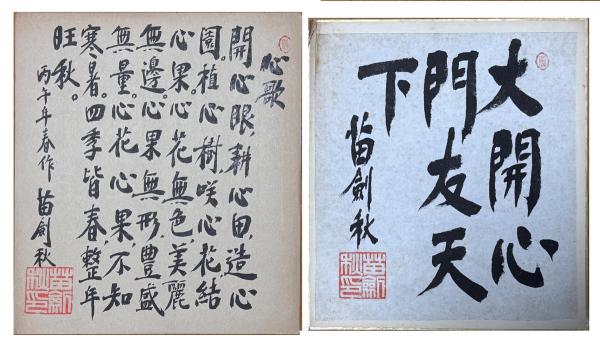 心歌
開心眼，耕心田，造心
園。植心樹，咲心花結
心果。心花無色，美麗
無邊。心果無形，豊盛
無量。心花心果，不知
寒暑。四季皆春，整年
旺秋。
丙午年春作 苗劍秋
苗劍
秋印
大開心
門友天
下
苗劍秋
苗劍
秋印